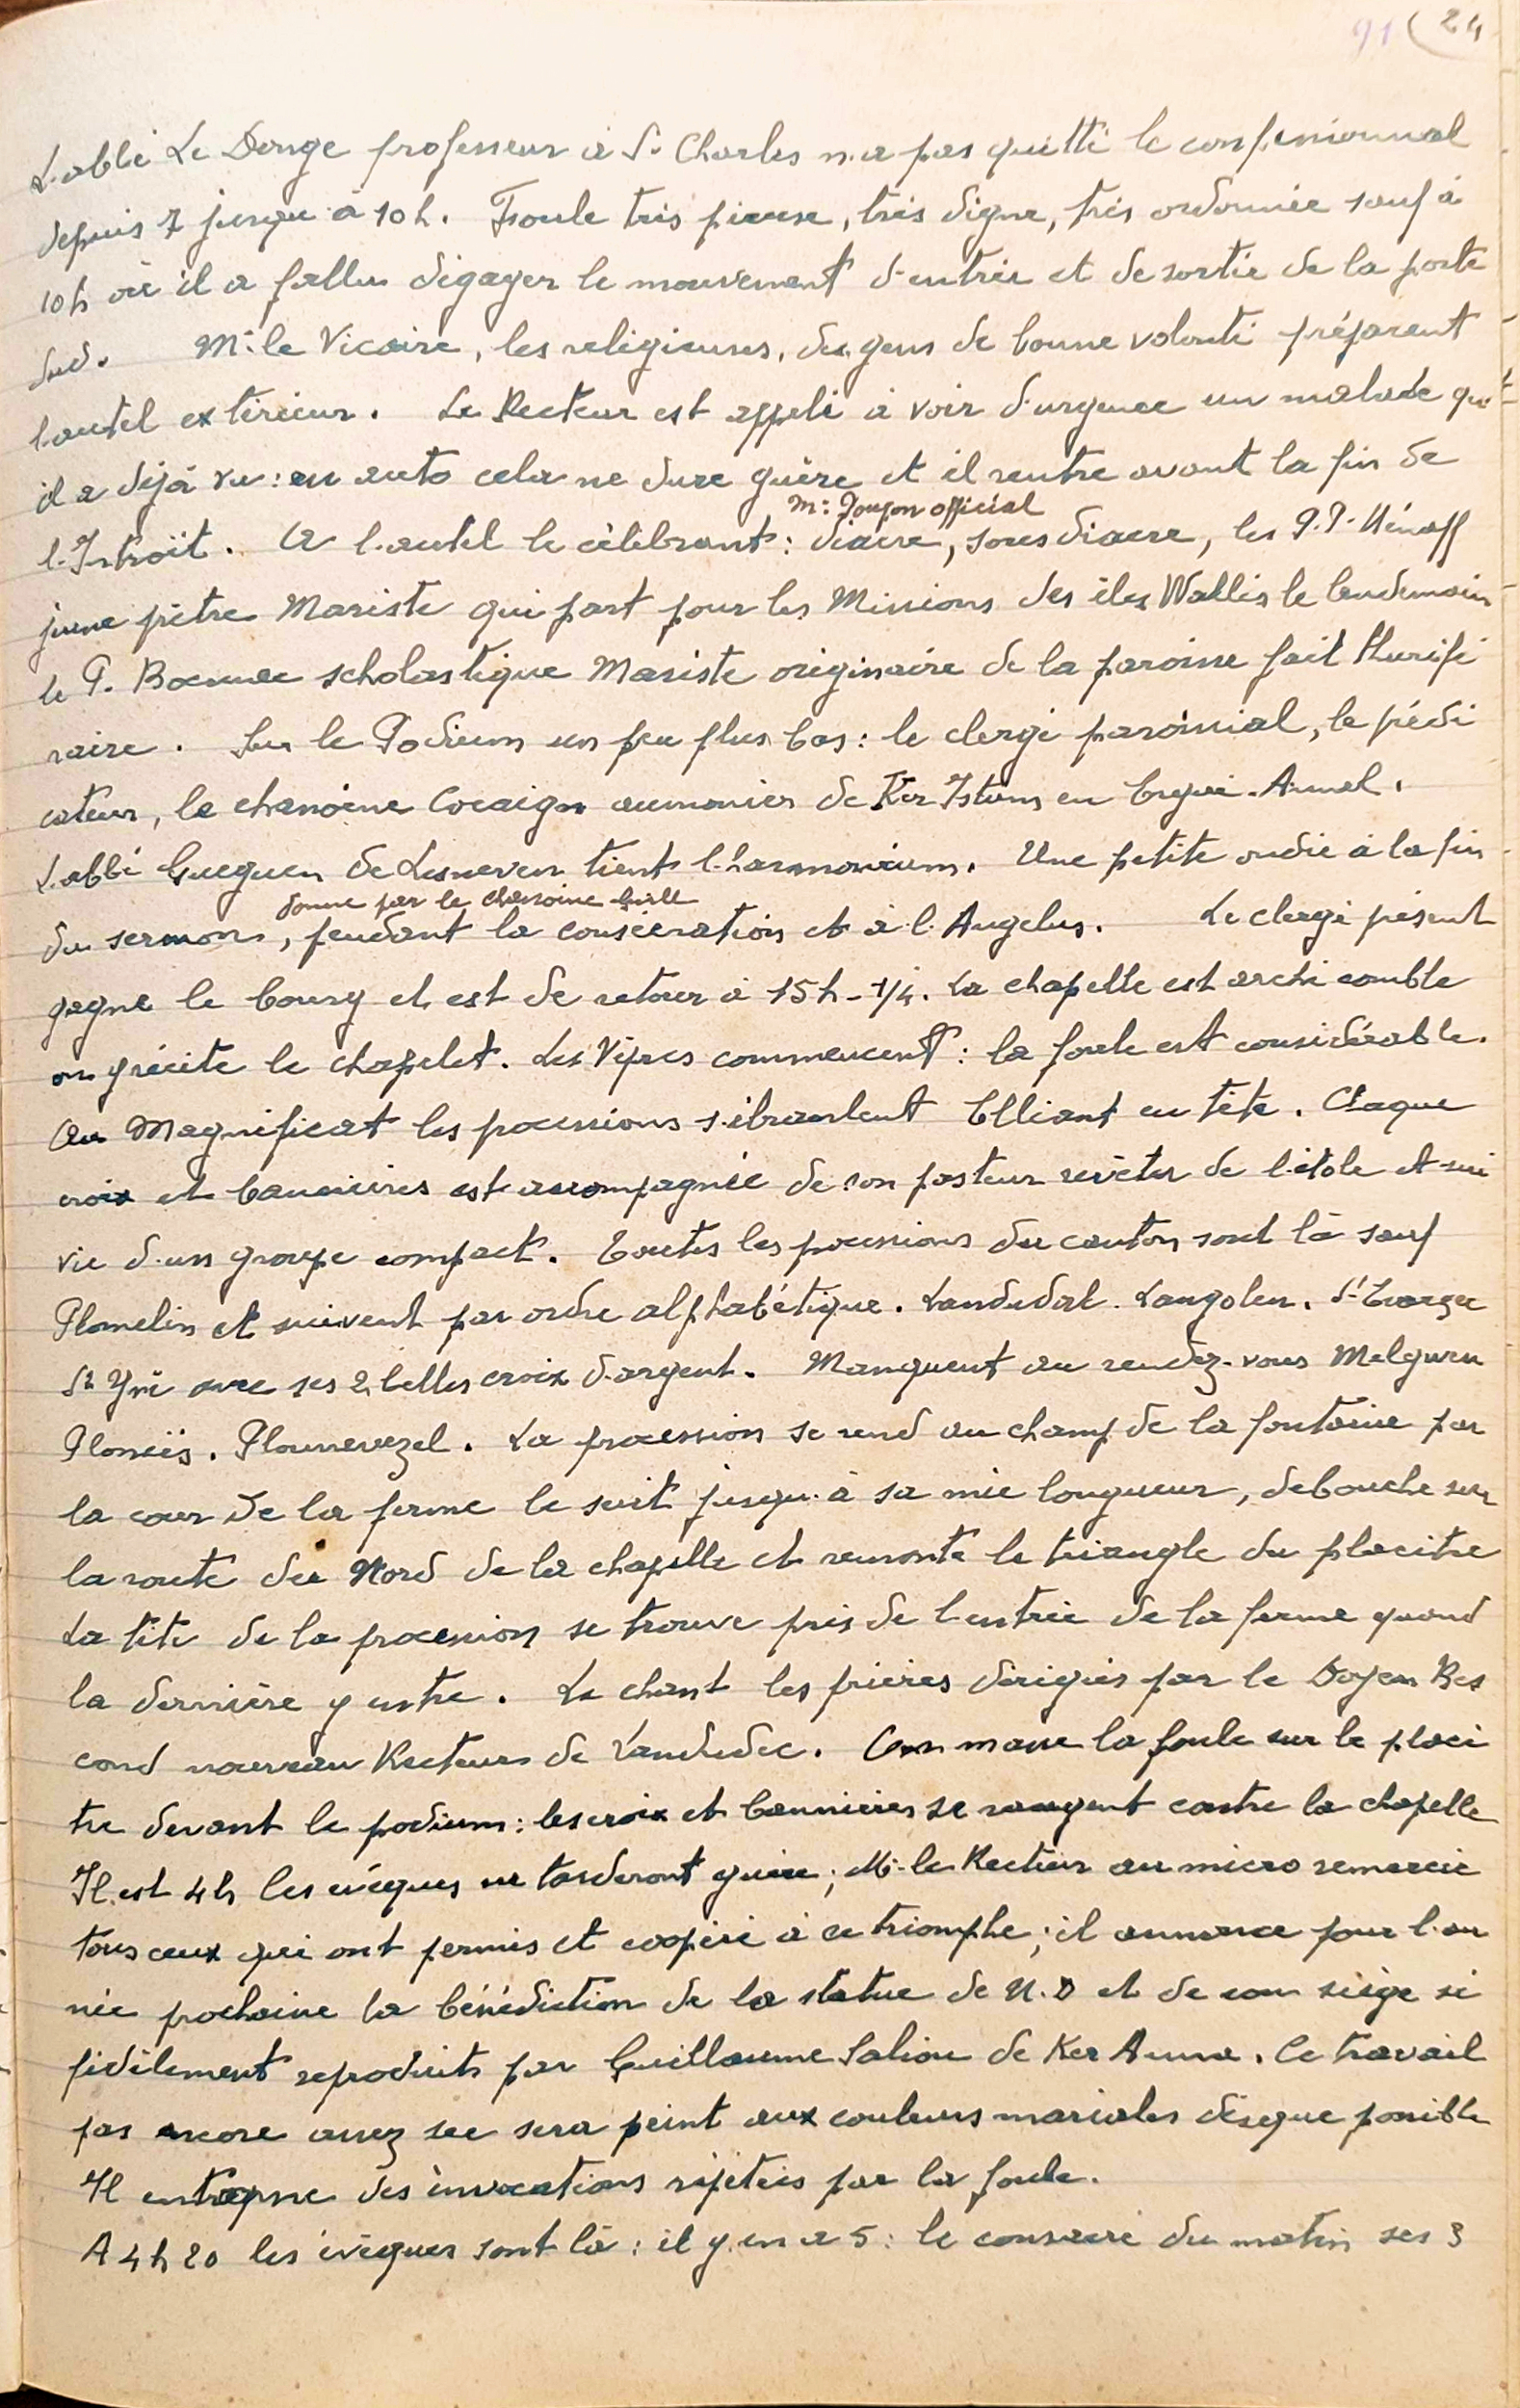 91 (24
L'abbé Le Donge professeur à St Charles n'a pas quitté le confessionnal
depuis 7 jusqu'à 10h. Foule très pieuse, très digne, très ordonnée sauf à
10h où il a fallu dégager le mouvement d'entrée et de sortie de la porte
sud. Mr le Vicaire, les religieuses, des gens de bonne volonté préparent
l'autel extérieur. Le Recteur est appelé à voir d'urgence un malade qu'
il a déjà vu : en auto cela ne dure guère et il rentre avant la fin de
Mr Joupon official
l'Introït. A l'autel le célébrant : diacre, sous diacre, les P.P. Hénaff
jeune prêtre Mariste qui part pour les Missions des îles Wallis le lendemain
le P. Boennec scholastique Mariste originaire de la paroisse fait thurifé
raire. Sur le Podium un peu plus bas : le clergé paroissial, le prédi
cateur, le chanoine Cocaign aumonier de Ker Istum en Ergué-Armel.
L'abbé Gueguen de Lesneven tient l'harmonium. Une petite ondée à la fin
donné par le chanoine
du sermon, pendant la consécration et à l'Angelus. Le clergé présent
gagne le bourg et est de retour à 15h-1/4. La chapelle est archi comble
on y récite le chapelet. Les Vêpres commencent : la foule est considérable.
Au Magnificat les processions s'ébranlent Elliant en tête. Chaque
croix et bannières est accompagnée de son pasteur revêtu de l'étole et sui
vie d'un groupe compact. Toutes les processions du canton sont là sauf
Plomelin et suivent par ordre alphabétique. Landudal. Langolen. St Evarzec
St Yvi avec ses 2 belles croix d'argent. Manquent au rendez-vous Melgven
Plonéïs. Plounevezel. La procession se rend au champ de la fontaine par
la cour de la ferme le suit jusqu'à sa mie longueur, debouche sur
la route du Nord de la chapelle et remonte le triangle du placitre
La tête de la procession se trouve près de l'entrée de la ferme quand
la dernière y entre. Le chant les prières dirigées par le Doyen Res
cond nouveau Recteur de Landudec. On masse la foule sur le placi
tre devant le podium : les croix et bannières se rangent contre la chapelle
Il est 4h les évêques ne tarderont guère ; Mr le Recteur au micro remercie
tous ceux qui ont permis et coopéré à ce triomphe ; il annonce pour l'an
née prochaine la bénédiction de la statue de N.D et de son siège si
fidèlement reproduits par Guillaume Saliou de Ker Anna. Ce travail
pas encore assez sec sera peint aux couleurs mariales dès que possible
Il entonne des invocations répétées par la foule.
A 4h20 les évêques sont là : il y en a 5 : le consacré du matin ses 3